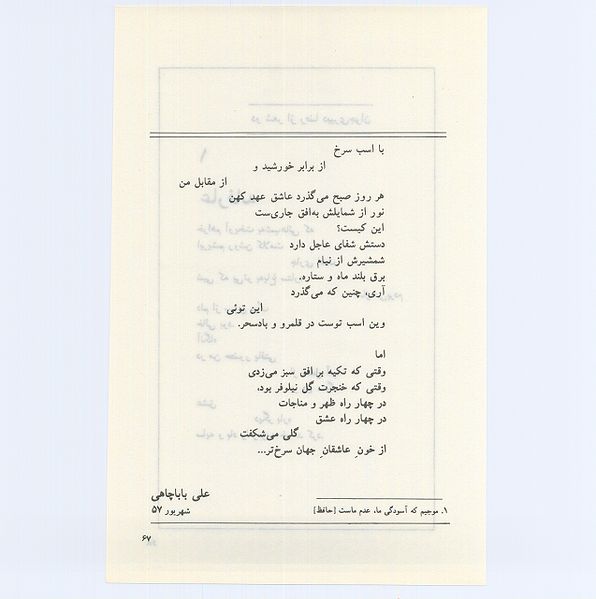 با اسب سرخ
از برابر خورشید و
از مقابل من
هر روز صبح می‌گذرد عاشق عهد کهن
نور از شمایلش به‌افق جاری‌ست
این کیست؟
دستش شفای عاجل دارد
شمشیرش از نیام
برق بلند ماه و ستاره.
آری، چنین که می‌گذرد
این توئی
وین اسب توست در قلمرو و بادسحر.
اما
وقتی که تکیه بر افق سبز می‌زدی
وقتی که خنجرت گِل نیلوفر بود،
در چهار راه ظهر و مناجات
در چهار راه عشق
گلی می‌شکفت
از خونِ عاشقانِ جهان سرخ‌تر...
علی باباچاهی
شهریور ۵۷
۱. موجیم که آسودگی ما، عدم ماست [حافظ]
۶۷